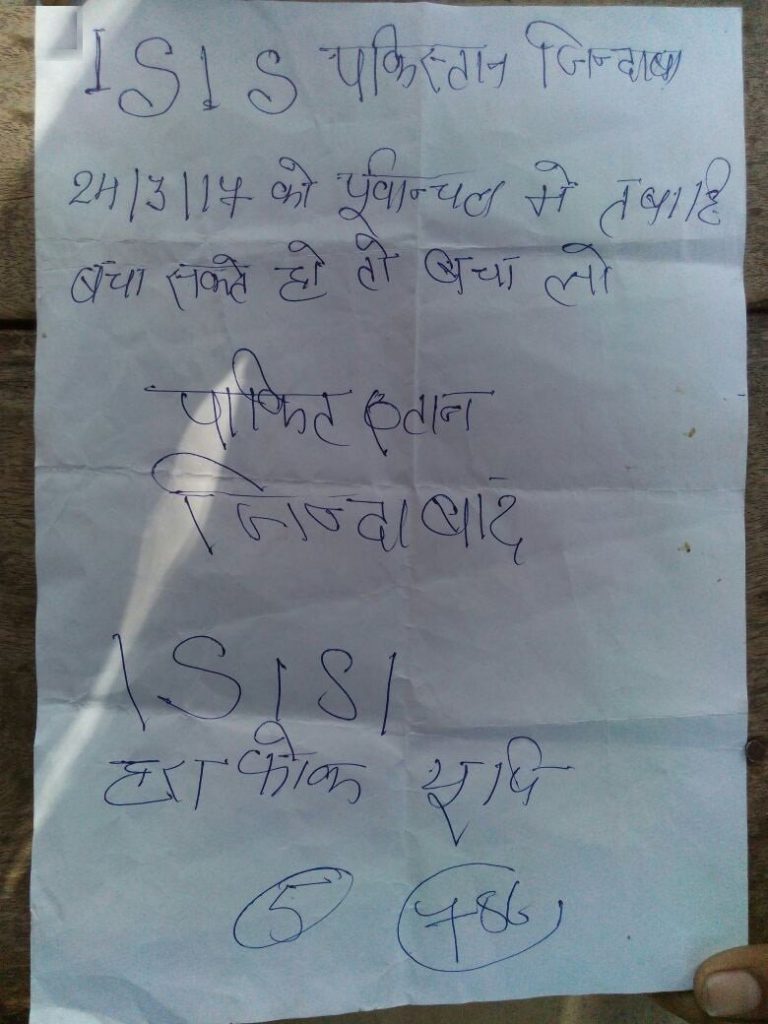 ISIS पकिस्तान जिन्दाबा
24/3/17 को पूर्वान्चल मे तबाहि
बचा सकते हो तो बचा लो
जिन्दाबाद
ISISI
5 786